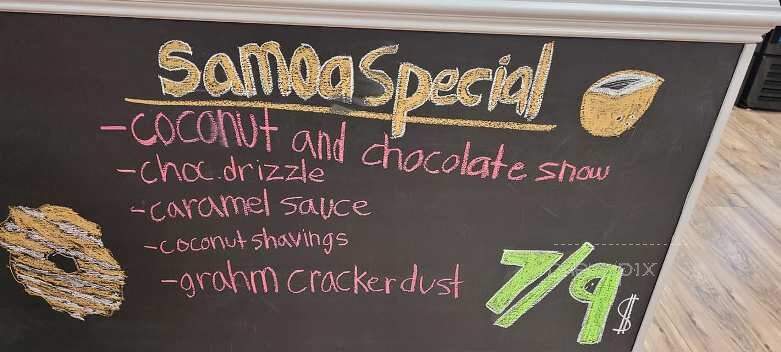 Samoa Special
-coconut and chocolate snow
-choc. drizzle
-caramel sauce
-coconut shavings
-grahm crackerdust
7/9 $